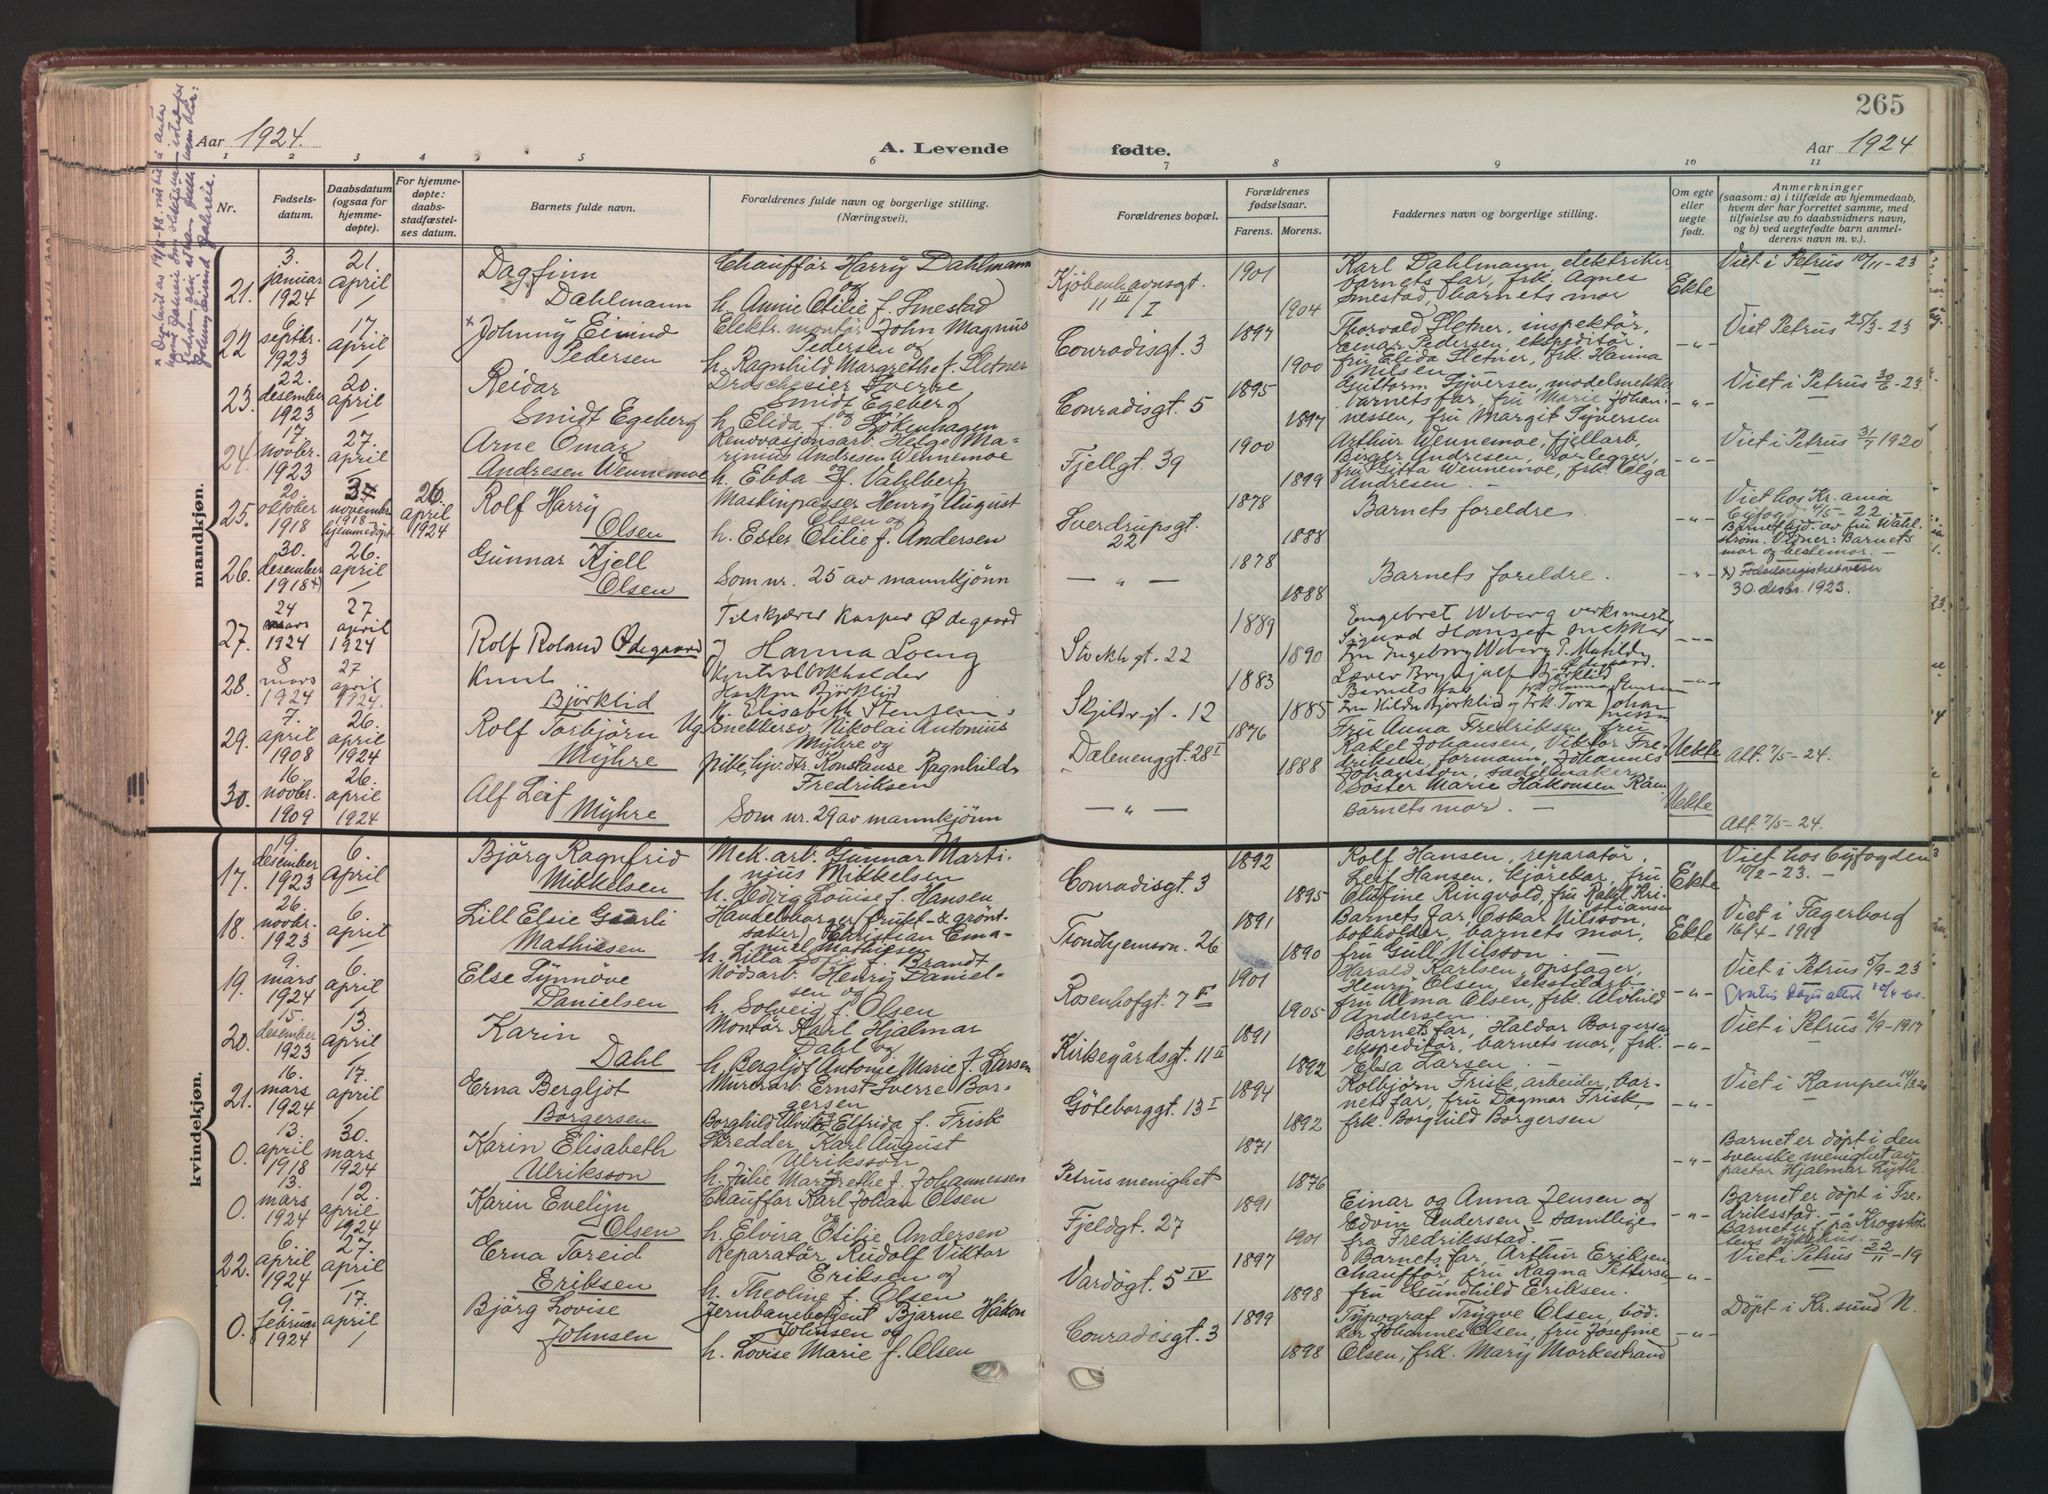 265
Aar 1924.
A. Levende
fødte.
Aar 1924
1 2 3 4 5 6 7 8 9 10 11
Nr.
Fødsels-
datum.
Daabsdatum
(ogsaa for
hjemme-
døpte).
For hjemme-
døpte:
daabs-
stadfæstel-
ses datum.
Barnets fulde navn.
Forældrenes fulde navn og borgerlige stilling.
(Næringsvei).
Forældrenes bopæl.
Forældrenes
fødselsaar.
Farens. Morens.
Faddernes navn og borgerlige stilling.
Om egte
eller
uegte
født.
Anmerkninger
(saasom: a) i tilfælde av hjemmedaab,
hvem der har forrettet samme, med
tilføielse av to daabsvidners navn,
og b) ved uegtefødte barn anmel-
derens navn m. v.).
mandkjøn.
21. 3. januar 1924
21 april
Dagfinn
Dahlmann
Chauffør Harry Dahlmann
og
h. Annie Otilie f. Smestad
Kjøbenhavnsgt.
11 III/I
1901
1904
Karl Dahlmann, elektriker
barnets far, frk. Agnes
Smestad, barnets mor
Ekte
Viet i Petrus 10/11-23
22 6. septbr. 1923
17 april
x Johnny Eivind
Pedersen
Elektr. montør John Magnus
Pedersen og
h. Ragnhild Margrethe f. Sletner
Conradisgt. 3
1897
1900
Thorvald Sletner, inspektør,
Einar Pedersen, ekspeditør,
fru Elida Sletner, frk. Hanna
Nilsen
-"-
Viet Petrus 25/3-23
23. 22. desember 1923
20. april
Reidar
Smidt Egeberg
Droscheeier Sverre
Smidt Egeberg
og
h. Elida f. Løkenhagen
Conradisgt. 5
1895
1897
Guttorm Syversen, modelsnekker
barnets far, fru Marie Johan-
nessen, fru Margit Syversen
-"-
Viet i Petrus 30/6-23
24. 17 novbr. 1923
27. april
Arne Omar
Andresen Wennemoe
Renovasjonsarb. Helge Ma-
rinius Andresen Wennemoe
og
h. Ebba f. Vahlberg
Fjellgt 39
1900
1899
Arthur Wennemoe, fjellarb,
Birger Andresen, rørlegger,
fru Gitta Wennemoe, frk. Olga
Andresen. -
-"-
Viet i Petrus 31/7 1920
25. 20. oktober 1918
november 1918
hjemmedøpt
26 april 1924
Rolf Harry
Olsen
Maskinpasser Henry August
Olsen og
h. Ester Otilie f. Andersen
Sverdrupsgt.
22
1878
1888
Barnets foreldre.
-"-
Viet hos Kr.ania
Byfogd 4/5-22
Barnet hjd. av fru Wahl-
strøm. Vidner: Barnets
mor og bestemor. -
26. 30. desember 1918 x)
26. april
Gunnar Kjell
Olsen
Som nr. 25 av mannkjønn
- " -
1878
1888
Barnets foreldre.
-"-
x) Fødselsregistret viser
30. desbr. 1923.
27. 24 mars 1924
27 april 1924
Rolf Roland Ødegaard
Tilskjærer Kasper Ødegaard
Hanna Loeng
Stockh gt. 22
1889
1890
Engebret Wiberg verksmester
Sigurd Hansen snekker
Fru Ingeborg Wiberg F. Matilde
Ødegaard.
-"-
28. 8 mars 1924
27 april 1924.
Knut
Bjørklid
Kontrolbokholder
Haakon Bjørklid
h. Elisabeth Stensen
Skjildr gt. 12
1883
1885
Lærer Brynjulf Bjørklid
Barnets far
Fru Hilda Bjørklid og Frk. Tora Johan-
nessen
-"-
29. 7. april 1908
26. april 1924
Rolf Torbjørn
Myhre
Ug Snekkersv. Nikolai Antonius
Myhre og
Pike, hjv. dtr. Konstanse Ragnhild
Fredriksen
Dælenenggt. 28 I
1876
1888
Fru Anna Fredriksen fru
Rakel Johansen, Viktor Fre-
driksen, formann, Johannes
Johansson, sadelmaker
Uekte
Att. 7/5-24.
30. 16. novbr. 1909
26. april 1924
Alf Leif
Myhre
Som nr. 29 av mannkjønn
- " -
Søster Marie Håkonsen
Barnets mor. -
Uekte
Att. 7/5-24.
kvindekjøn.
17. 19. desember 1923
6. april
Bjørg Ragnfrid
Mikkelsen
Mek. arb. Gunnar Marti-
nius Mikkelsen
h. Hedvig Louise f. Hansen
Conradisgt. 3
1892
1895
Rolf Hansen, reparatør,
Leif Hansen, kjørekar, fru
Olufine Ringvold, fru Rakel Kri-
stiansen
Ekte
Viet hos Byfogden
10/2-23. -
18. 26. novbr. 1923
6. april
Lill Elsie Guurli
Mathiesen
Handelsborger (frukt- & grønt-
saker), Christian Ema-
nuel Mathiesen
h. Lilla Sofie f. Brandt
Trondhjemsvn. 26
1891
1890
Barnets far, Oskar Nilsson,
bokholder, barnets mor,
fru Gull Nilsson. -
Ekte
Viet i Fagerborg
16/4-1919
19. 9. mars 1924
6. april
Else Synnøve
Danielsen
Nødsarb. Henry Daniel-
sen og
h. Solveig f. Olsen
Rosenhofgt. 7 II
1901
1905
Harald Karlsen, opslager,
Henry Olsen, tekstilarb.
fru Alma Olsen, frk. Alvhild
Andersen. -
-"-
Viet i Petrus 5/9-23
20. 15. desember 1923
13 april
Karin
Dahl
Montør Karl Hjalmar
Dahl og
h. Bergljot Antonie Marie f. Larsen
Kirkegårdsgt. 11 II
1891
1892
Barnets far, Haldor Borgersen
ekspeditør, barnets mor, frk.
Elsa Larsen. -
-"-
Viet i Petrus 2/9-1917
21. 16. mars 1924
17. april
Erna Bergljot
Borgersen
Murerarb. Ernst Sverre Bor-
gersen
Borghild Ulrikke Elfrida f. Frisk
Gøteborggt. 13 I
1894
1892
Kolbjørn Frisk, arbeider, bar-
nets far, fru Dagmar Frisk,
frk. Borghild Borgersen
-"-
Viet i Kampen 14/3 20
0. 13 april 1918
30. mars 1924
Karin Elisabeth
Ulriksson
Skredder Karl August
Ulriksson
og
h. Julie Margrethe f. Johannessen
Petrus menighet
1871
1876
-"-
Barnet er døpt i den
svenske menighet av
pastor Hjalmar Lyth.
0. 13. mars 1924
12. april 1924
Karin Evelyn
Olsen
Chauffør Karl Johan Olsen
og
h. Elvira Otilie Andersen
Fjeldgt. 27
1891
1901
Einar og Anna Jensen og
Edvin Andersen - samtlige
fra Fredriksstad. -
-"-
Barnet er døpt i Fre-
driksstad. -
Barnet er f. på Krogstøt-
tens sykehus.
22. 6. april 1924
27. april
Erna Toreid
Eriksen
Reparatør Rudolf Viktor
Eriksen og
h. Theoline f. Olsen
Vardøgt. 5 IV
1897
1898
Barnets far, Arthur Eriksen
chauffør, fru Ragna Pettersen
fru Gundhild Eriksen.
-"-
Viet i Petrus 22/11-19
0. 9 februar 1924
17. april
Bjørg Lovise
Johnsen
Jernbanebetjent Bjarne Håkon
Johnsen og
h. Lovise Marie f. Olsen
Conradisgt. 3
1899
1898
Typograf Trygve Olsen, bød-
ker Johannes Olsen, fru Josefine
Olsen, frk. Mary Mørkestrand
-"-
Døpt i Kr.sund N.